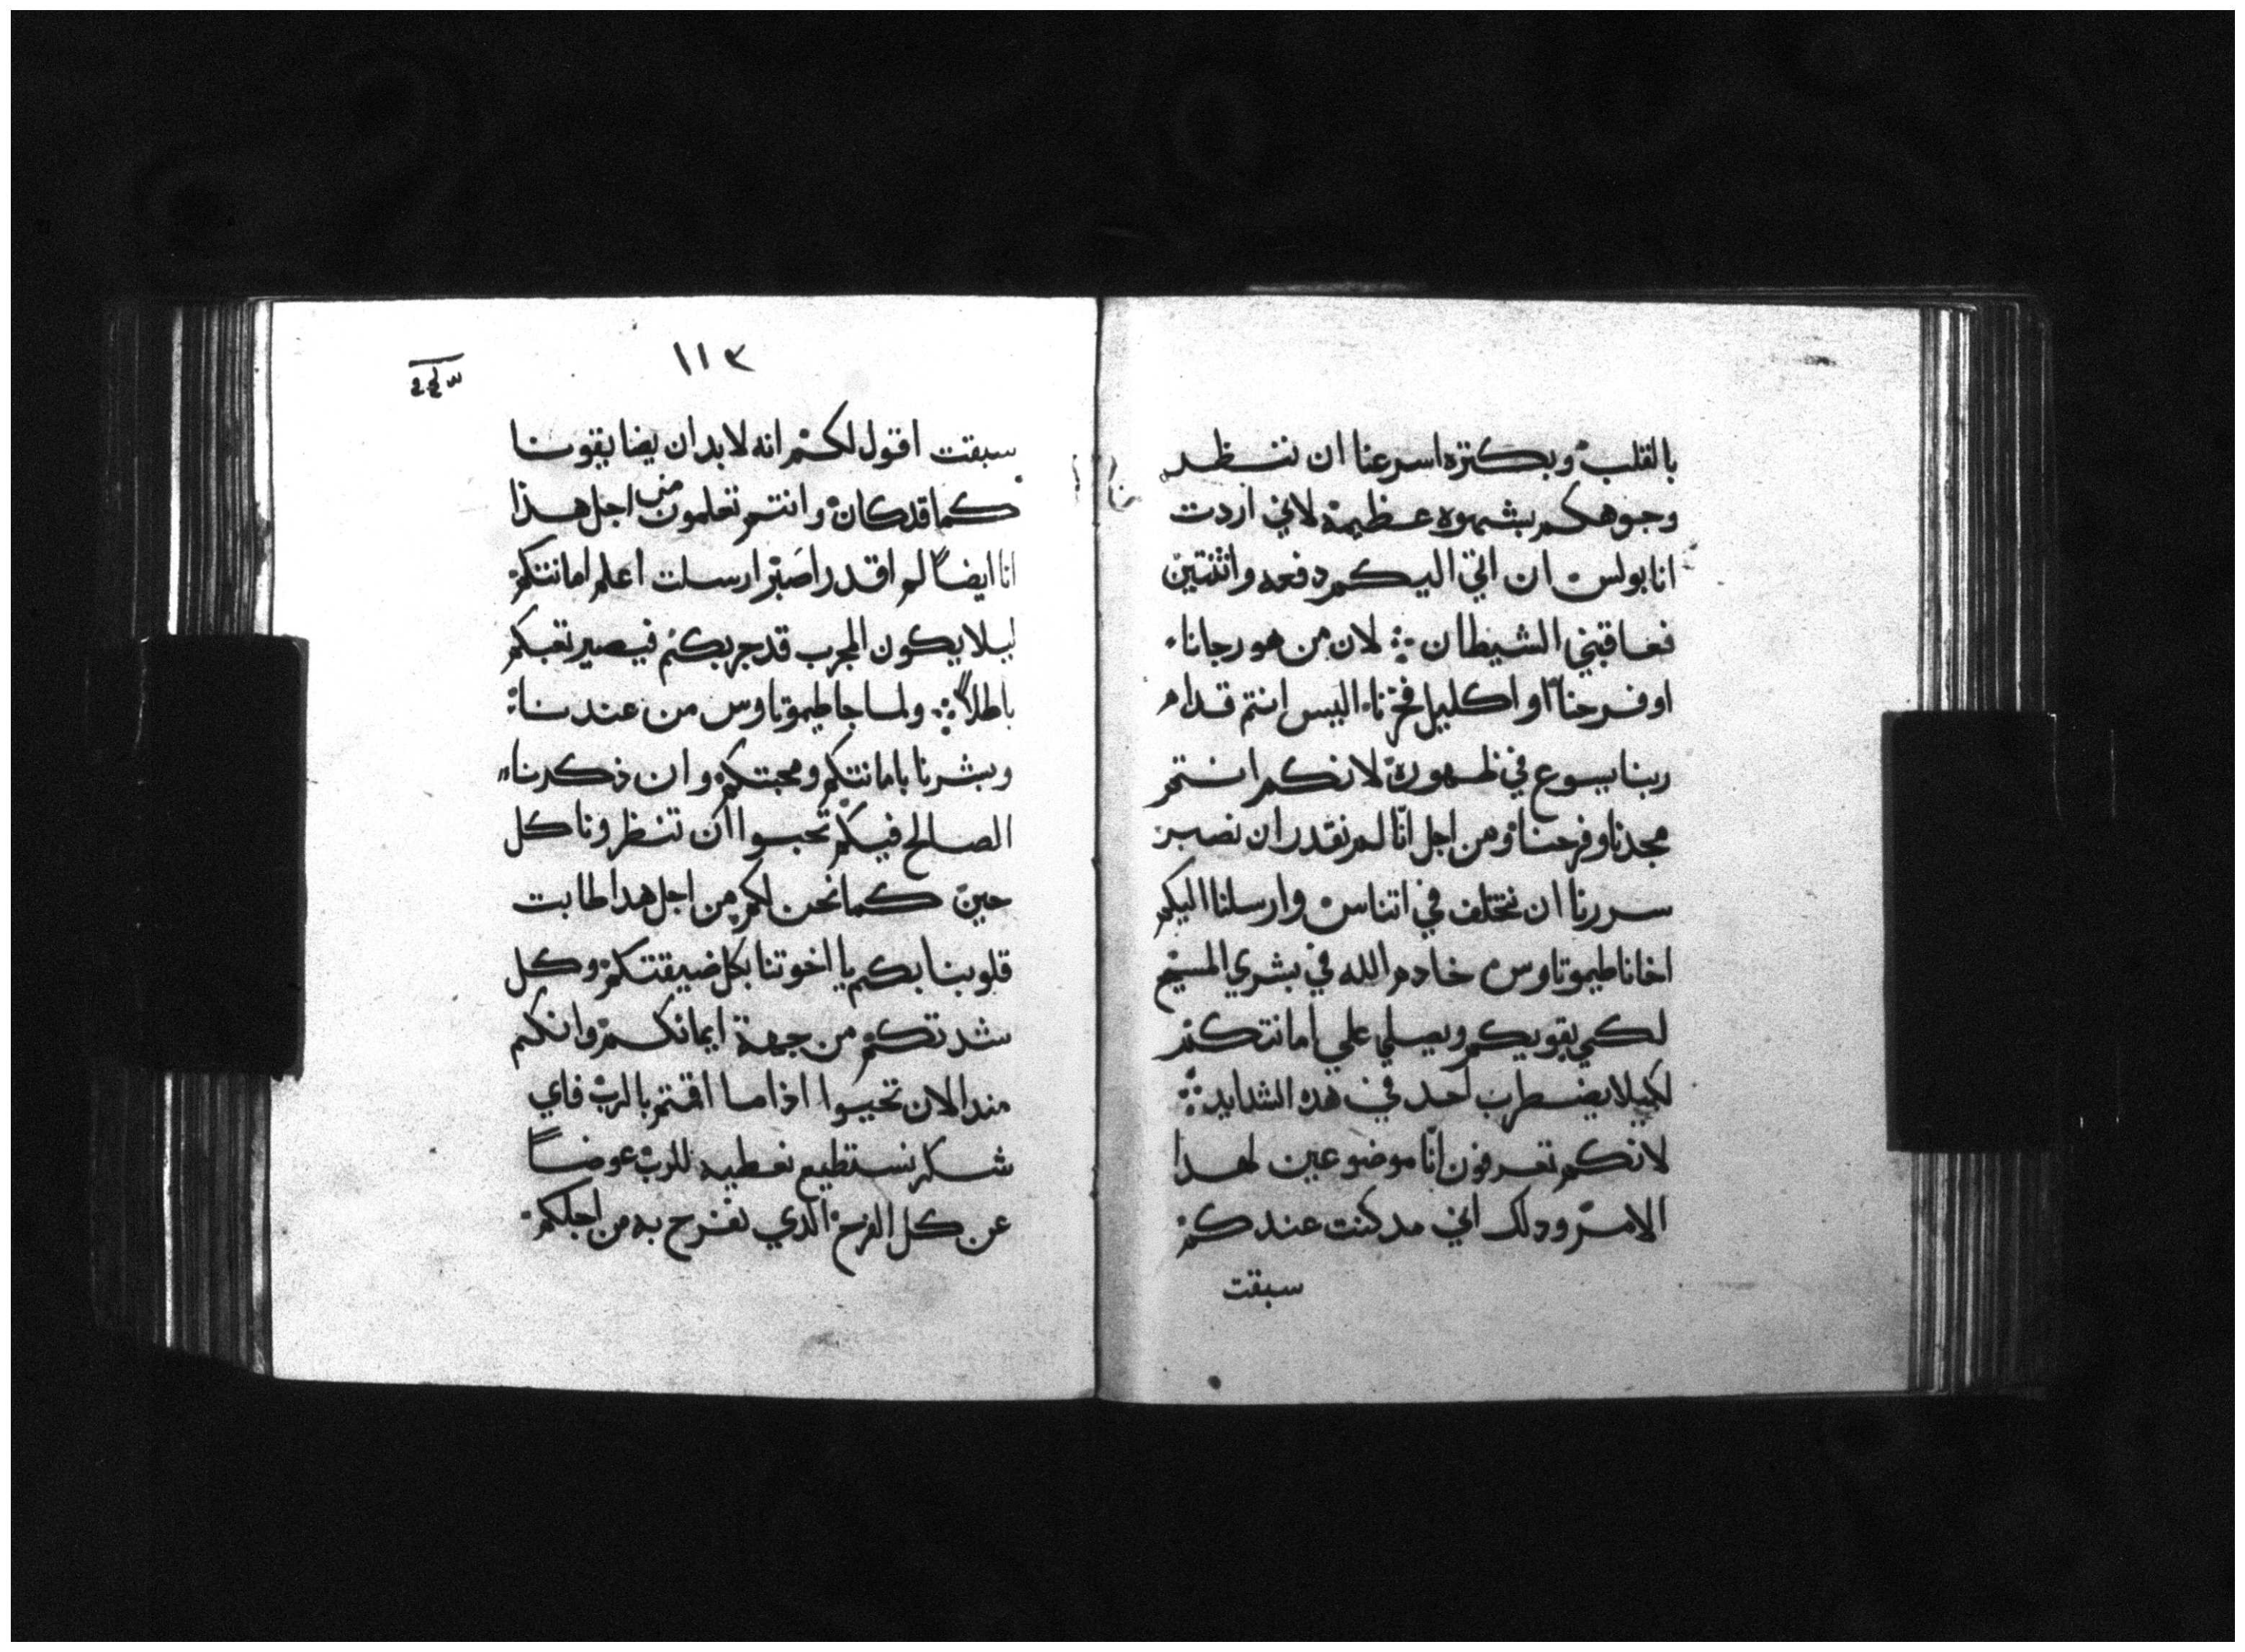 بالقلب وبكتره اسرعنا ان ننظر
وجوهكم بشهوه عظيمة لاني اردت
انا بولس ان اتي اليكم دفعه واثنتين
فعاقني الشيطان ؞ لان من هو رجانا
او فرحنا او اكليل فخرنا اليس انتم قدام
ربنا يسوع في ظهوره لانكم انتم
مجدنا وفرحنا ومن اجل انّا لم نقدر ان نصبر
سررنا ان نتخلف في اتناس وارسلنا اليكم
اخانا طيموتاوس خادم الله في بشري المسيح
لكي يقويكم ويصلي علي امانتكم
لكيلا يضطرب احد في هده الشدايد ؞
لانكم تعرفون انّا موضوعين لهدا
الامر ودلك اني مد كنت عندكم
سبقت
١١٣
سبقت اقول لكم انه لا بد ان يضايقونا
كما قد كان وانتم تعلمون من اجل هذا
انا ايضاً لم اقدر اصبر ارسلت اعلم امانتكم
ليلا يكون المجرب قد جربكم فيصير تعبكم
باطلاً ؞ ولما جا طيموتاوس من عندنا
وبشرنا بامانتكم ومحبتكم وان ذكرنا
الصالح فيكم تحبوا ان تنظرونا كل
حين كما نحن لكم من اجل هدا طابت
قلوبنا بكم يا اخوتنا بكل ضيقتكم وكل
شدتكم من جهة ايمانكم وانكم
مند الان تحيوا اذا ما اقمتم بالرب فاي
شكر نستطيع نعطيه للرب عوضاً
عن كل الفرح الدي نفرح به من اجلكم